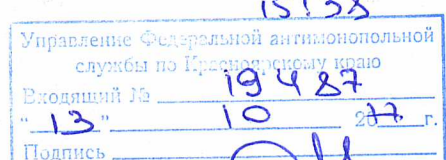 15:38
Управление Федеральной антимонопольной
службы по Красноярскому краю
Входящий № 19487
"13" 10 2017 г.
Подпись